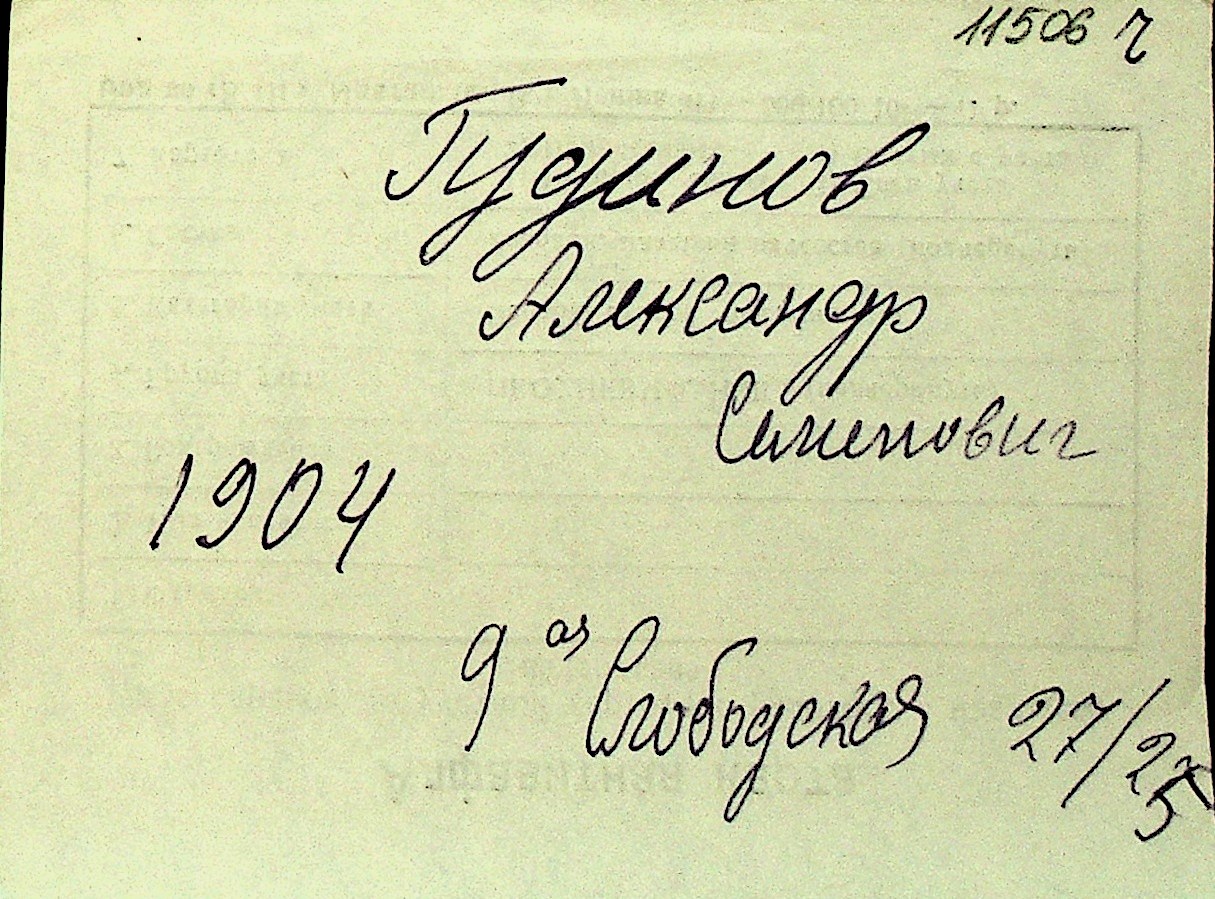 11506 ч
Гудинов
Александр
Семенович
1904
9 ая Слободская 27/25